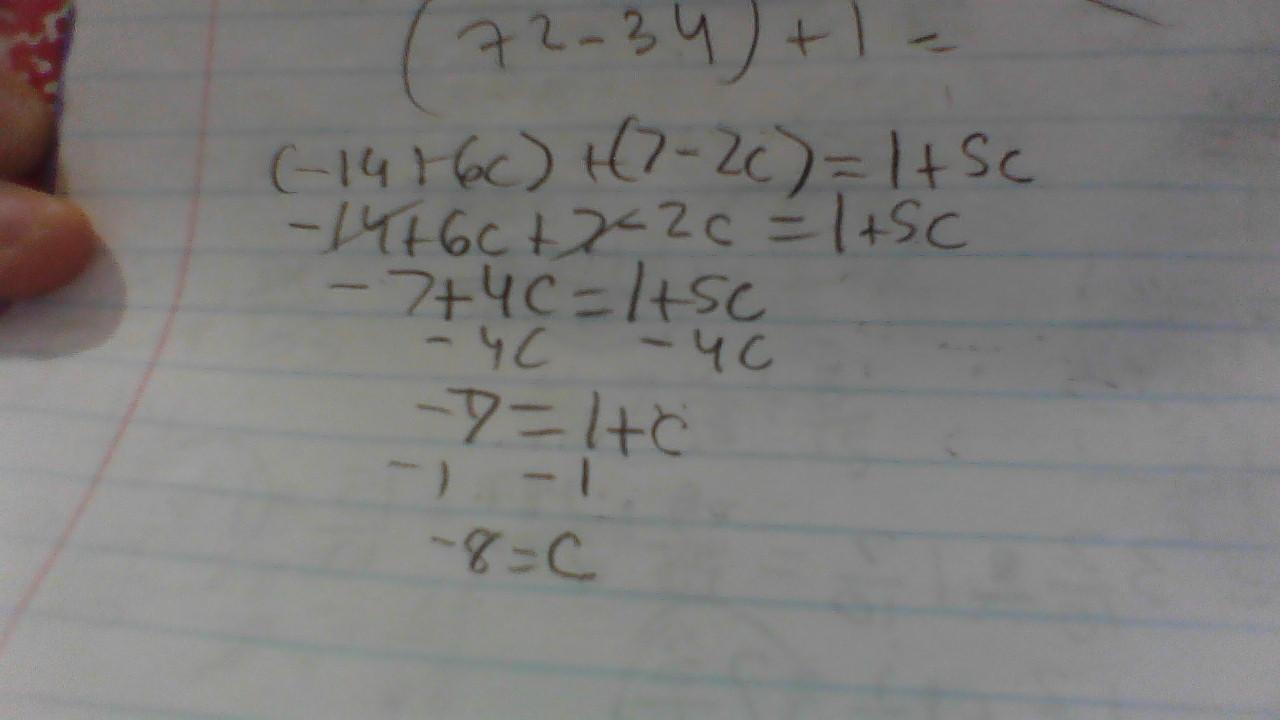 (72-34)+1=
(-14+6c)+(7-2c)=1+5c
-14+6c+7-2c=1+5c
-7+4c=1+5c
-4c -4c
-7=1+c
-1 -1
-8=c